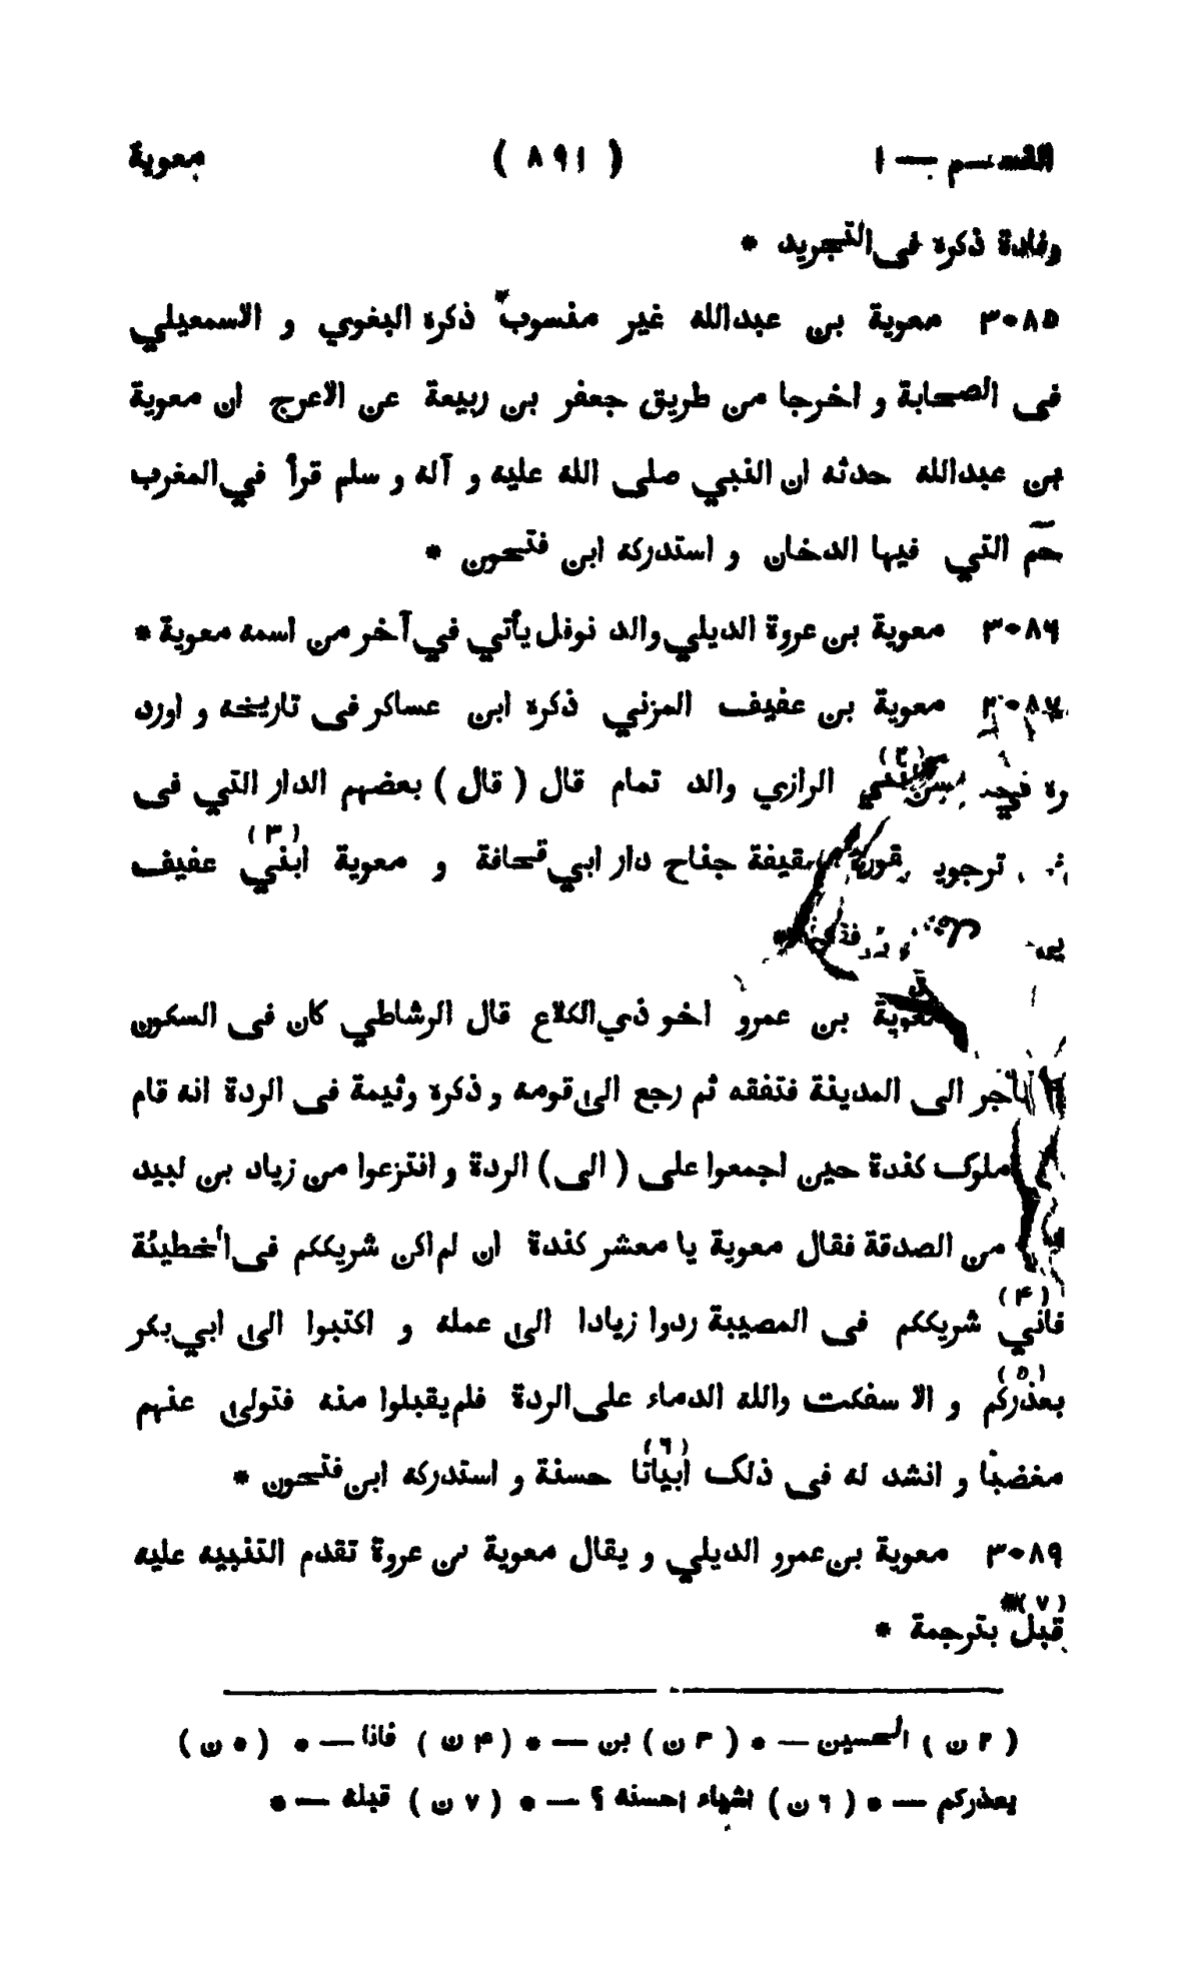 القسم — ١ ( ٨٩١ ) معوية
وفادة ذكره فى التجريد *
٣٠٨٥ معوية بن عبدالله غير منسوب ذكره البغوي و الاسمعيلي
فى الصحابة و اخرجا من طريق جعفر بن ربيعة عن الاعرج ان معوية
بن عبدالله حدثه ان النبي صلى الله عليه و آله و سلم قرأ في المغرب
حم التي فيها الدخان و استدركه ابن فتحون *
٣٠٨٦ معوية بن عروة الديلي والد نوفل يأتي في آخر من اسمه معوية *
٣٠٨٧ معوية بن عفيف المزني ذكره ابن عساكر فى تاريخه و اورد
الرازي والد تمام قال ( قال ) بعضهم الدار التي فى
سقيفة جناح دار ابي قحافة و معوية ابني (٣) عفيف
معوية بن عمرو اخو ذي الكلاع قال الرشاطي كان فى السكون
هاجر الى المدينة فتفقه ثم رجع الى قومه و ذكره وثيمة فى الردة انه قام
ملوك كندة حين اجمعوا على ( الى ) الردة و انتزعوا من زياد بن لبيد
من الصدقة فقال معوية يا معشر كندة ان لم اكن شريككم فى الخطيئة
فاني (۴) شريككم فى المصيبة ردوا زيادا الى عمله و اكتبوا الى ابي بكر
بعذركم (٥) و الا سفكت والله الدماء على الردة فلم يقبلوا منه فتولى عنهم
مغضبا و انشد له فى ذلك ابياتا (٦) حسنة و استدركه ابن فتحون *
٣٠٨٩ معوية بن عمرو الديلي و يقال معوية بن عروة تقدم التنبيه عليه
قبل (٧) بترجمة *
( ٢ ن ) الحسين — * ( ٣ ن ) بن — * ( ۴ ن ) فانا — * ( ٥ ن )
يعذركم — * ( ٦ ن ) اشهاء احسنه ؟ — * ( ٧ ن ) قبله — *